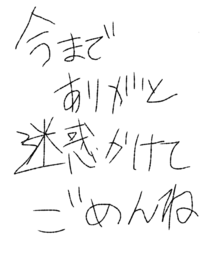 今まで
ありがと
迷惑かけて
ごめんね